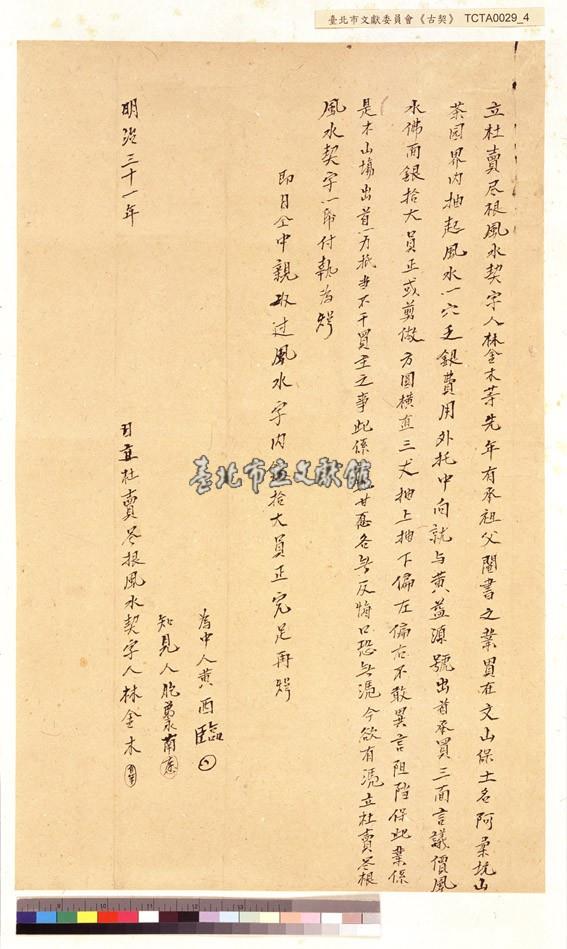 臺北市文獻委員會《古契》 TCTA0029_4
立杜賣尽根風水契字人林金木等先年有承祖父鬮書之業買在文山保土名阿柔坑山
茶园界內抽起風水一穴乏銀費用外托中向就与黄益源號出首承買三面言議價風
水佛面銀拾大員正或剪做方圓橫直三丈抽上抽下偏左偏右不敢異言阻挡保此業係
是木山塲出首一力抵当不干買主之事此係 甘愿各無反悔口恐無憑今欲有憑立杜賣尽根
風水契字一帋付執為炤
即日仝中親收过風水字內 拾大員正完足再炤
為中人黄西臨
知見人胞
明治三十一年 日立杜賣尽根風水契字人林金木
臺北市立文獻館